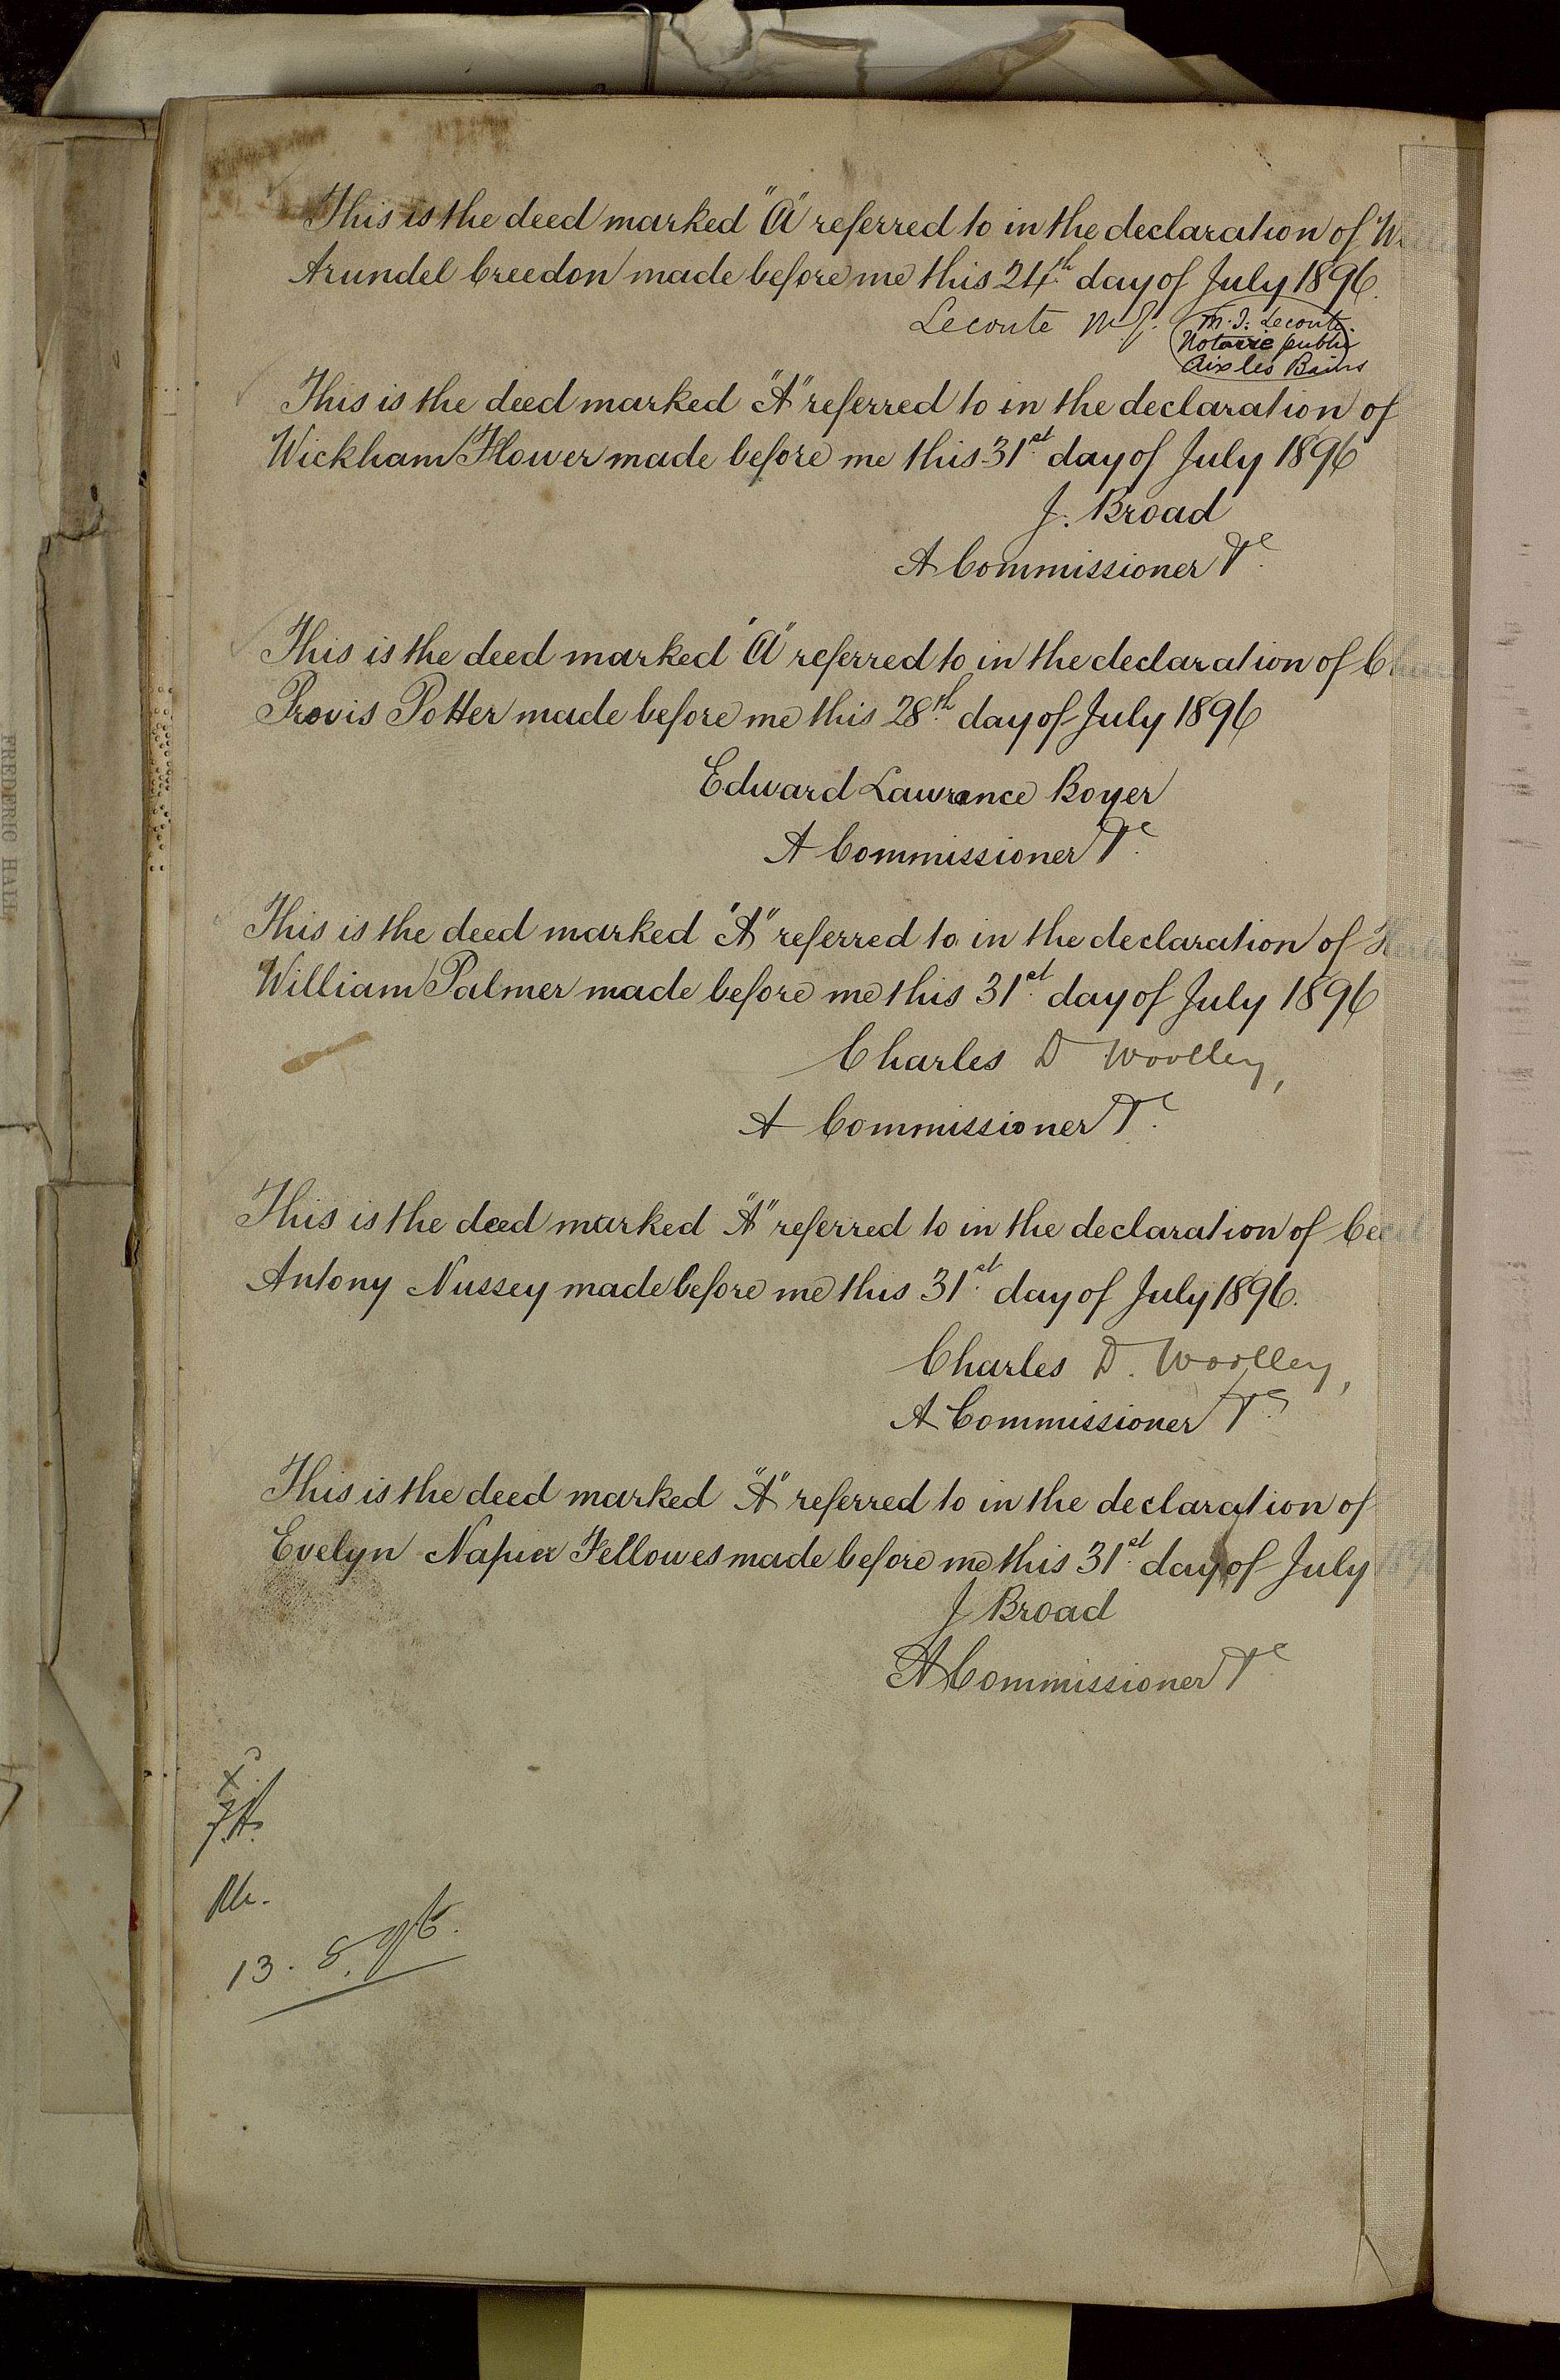 This is the deed marked "A" referred to in the declaration of
Arundel Creedon made before me this 24th day of July 1896.
Leconte M.J.
M.J. Leconte.
Notaire public
Aix les Bains
This is the deed marked "A" referred to in the declaration of
Wickham Flower made before me this 31st day of July 1896
J. Broad
A Commissioner &c.
This is the deed marked "A" referred to in the declaration of
Provis Potter made before me this 28th day of July 1896
Edward Lawrance Boyer
A Commissioner &c.
This is the deed marked "A" referred to in the declaration of
William Palmer made before me this 31st day of July 1896
Charles D Woolley,
A Commissioner &c.
This is the deed marked "A" referred to in the declaration of Cecil
Antony Nussey made before me this 31st day of July 1896.
Charles D. Woolley,
A Commissioner &c.
This is the deed marked "A" referred to in the declaration of
Evelyn Napier Fellowes made before me this 31st day of July
J Broad
A Commissioner &c.
13. 8. 96.
FREDERIC HALL